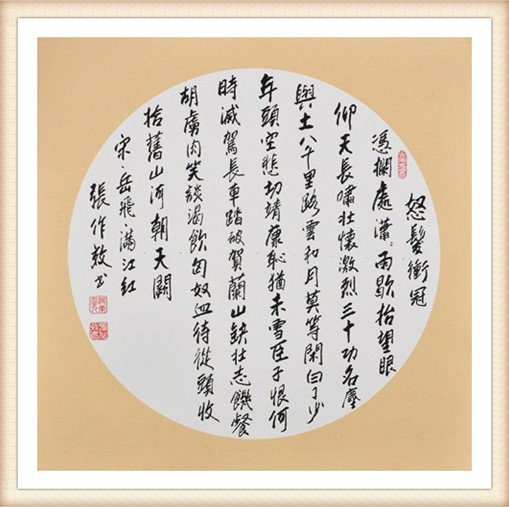 怒髮衝冠
憑欄處瀟〻雨歇抬望眼
仰天長嘯壯懷激烈三十功名塵
與土八千里路雲和月莫等閑白了少
年頭空悲切靖康恥猶未雪臣子恨何
時滅駕長車踏破賀蘭山缺壯志饑餐
胡虜肉笑談渴飲匈奴血待從頭收
拾舊山河朝天闕
宋·岳飛·滿江紅
張作书